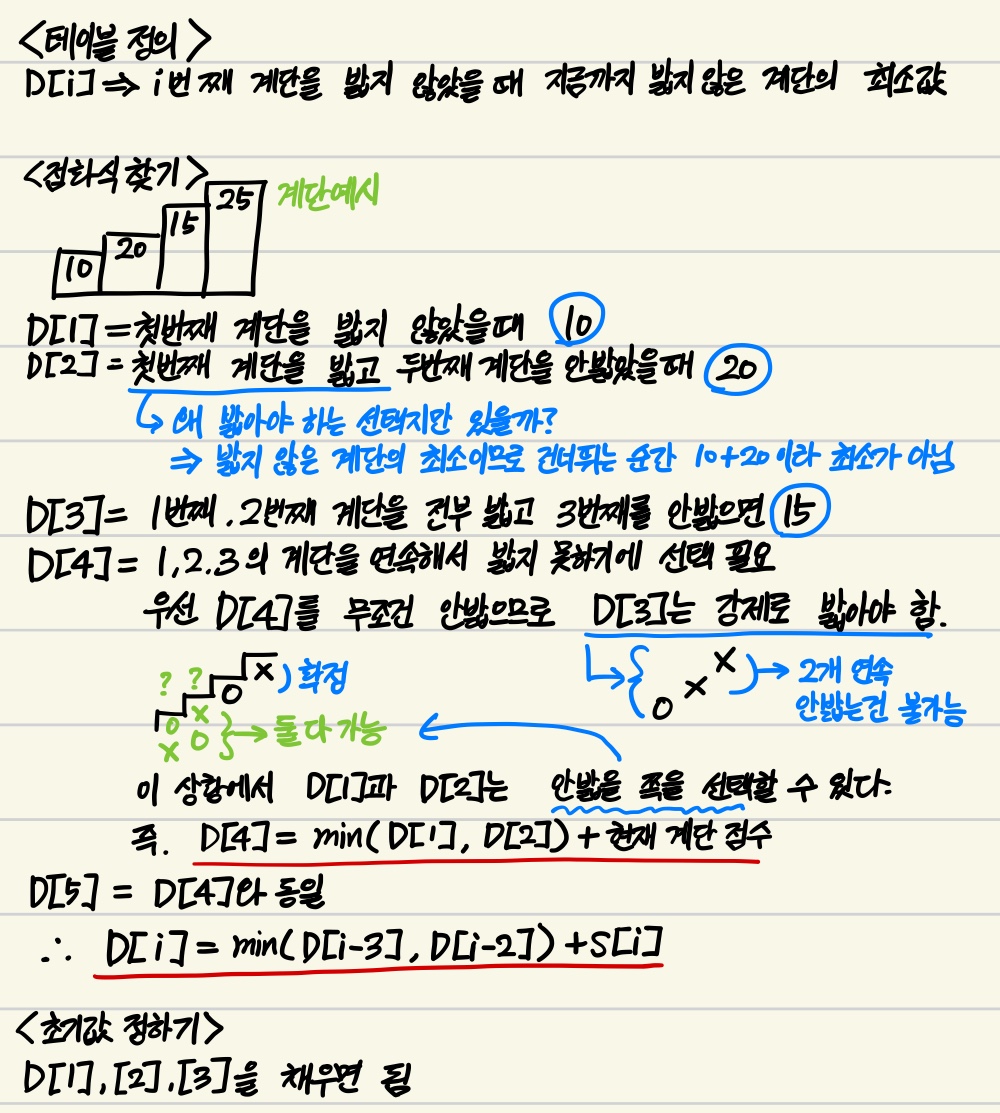 <테이블 정의>
D[i] ⇒ i번째 계단을 밟지 않았을때 지금까지 밟지않은 계단의 최소값
<점화식 찾기>
10 20 15 25 계단예시
D[1] = 첫번째 계단을 밟지 않았을때 10
D[2] = 첫번째 계단을 밟고 두번째 계단을 안밟았을때 20
↳ 왜 밟아야 하는 선택지만 있을까?
⇒ 밟지 않은 계단의 최소이므로 건너뛰는 순간 10+20 이라 최소가 아님
D[3] = 1번째, 2번째 계단을 전부 밟고 3번째를 안밟으면 15
D[4] = 1,2,3의 계단을 연속해서 밟지 못하기에 선택 필요
우선 D[4]를 무조건 안밟으므로 D[3]는 강제로 밟아야 함.
? ? O X ) 확정
O X } → 둘다 가능
X O
O X X → 2개 연속
안밟는건 불가능
이 상황에서 D[1]과 D[2]는 안밟을 쪽을 선택할 수 있다.
즉, D[4] = min(D[1], D[2]) + 현재 계단 점수
D[5] = D[4]와 동일
∴ D[i] = min(D[i-3], D[i-2]) + S[i]
<초기값 정하기>
D[1], [2], [3]을 채우면 됨